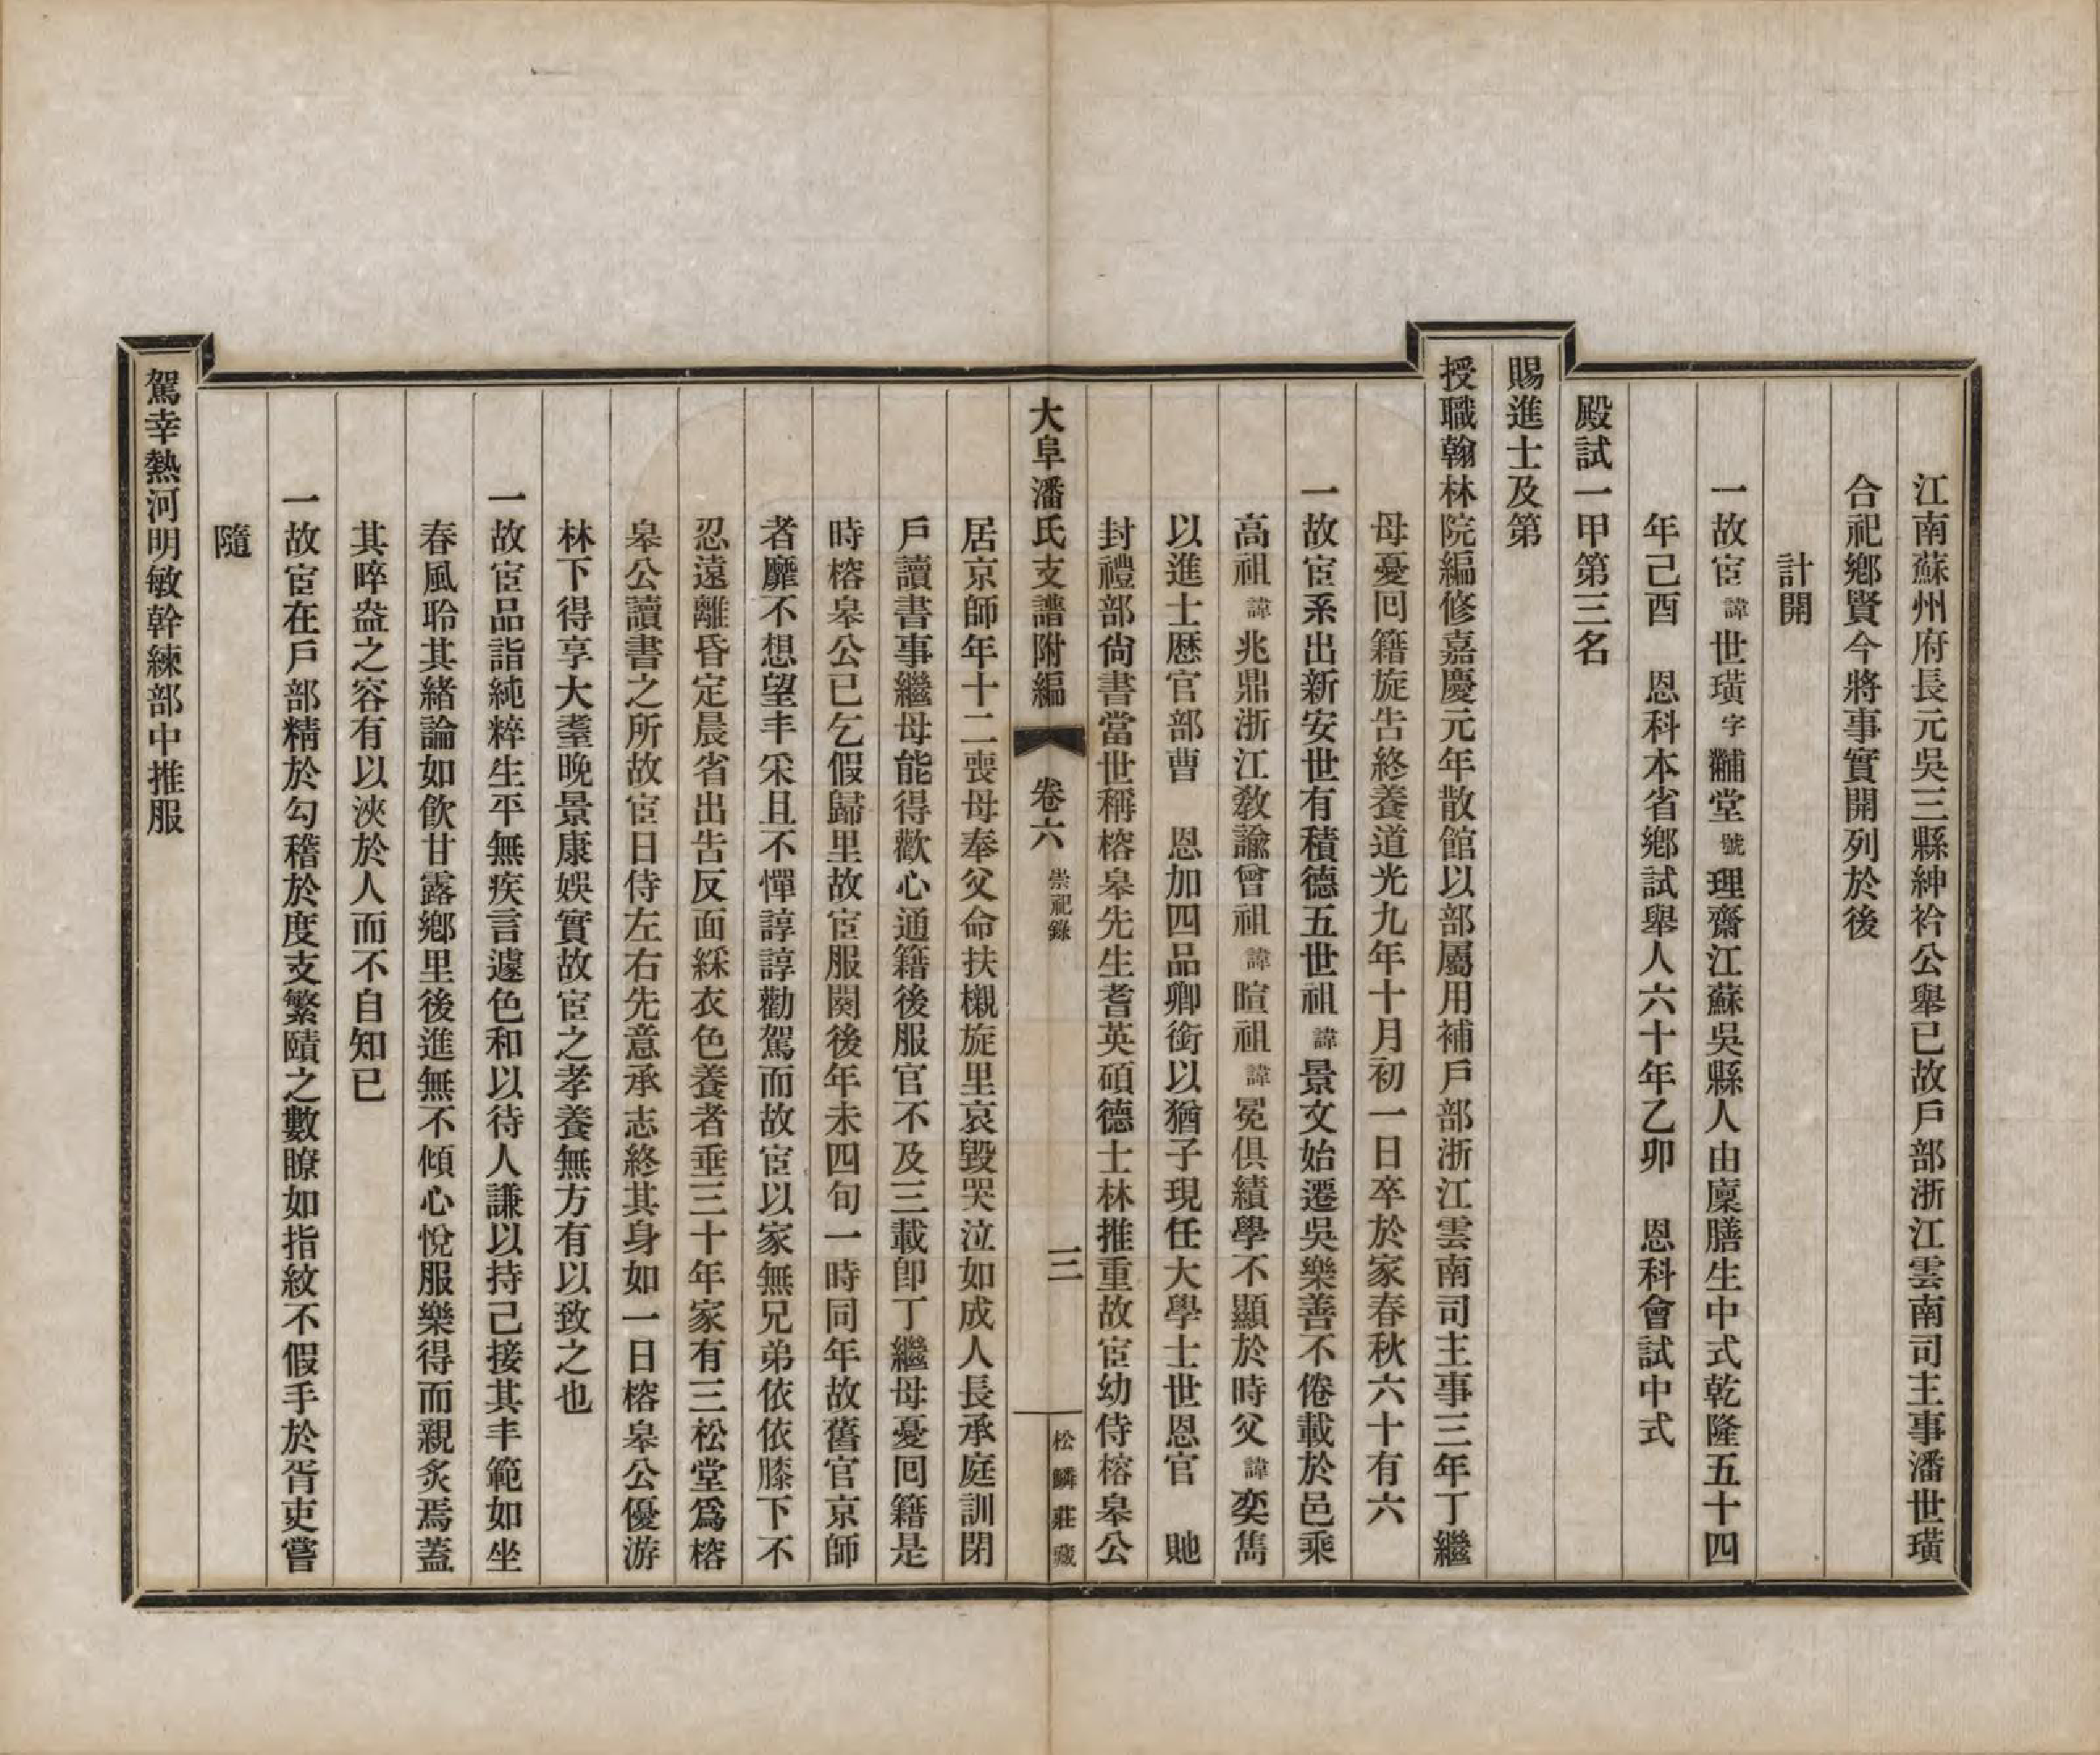 江南蘇州府長元吳三縣紳衿公舉已故戶部浙江雲南司主事潘世璜
合祀鄕賢今將事實開列於後
計開
一故宦諱世璜字黼堂號理齋江蘇吳縣人由廩膳生中式乾隆五十四
年己酉　恩科本省鄕試舉人六十年乙卯　恩科會試中式
殿試一甲第三名
賜進士及第
授職翰林院編修嘉慶元年散館以部屬用補戶部浙江雲南司主事三年丁繼
母憂囘籍旋吿終養道光九年十月初一日卒於家春秋六十有六
一故宦系出新安世有積德五世祖諱景文始遷吳樂善不倦載於邑乘
高祖諱兆鼎浙江敎諭曾祖諱暄祖諱冕俱績學不顯於時父諱奕雋
以進士歷官部曹　恩加四品卿銜以猶子現任大學士世恩官　貤
封禮部尙書當世稱榕皋先生耆英碩德士林推重故宦幼侍榕皋公
大阜潘氏支譜附編　卷六　崇祀錄　三　松鱗莊藏
居京師年十二喪母奉父命扶櫬旋里哀毀哭泣如成人長承庭訓閉
戶讀書事繼母能得歡心通籍後服官不及三載卽丁繼母憂囘籍是
時榕皋公已乞假歸里故宦服闋後年未四旬一時同年故舊官京師
者靡不想望丰采且不憚諄諄勸駕而故宦以家無兄弟依依膝下不
忍遠離昏定晨省出吿反面綵衣色養者垂三十年家有三松堂爲榕
皋公讀書之所故宦日侍左右先意承志終其身如一日榕皋公優游
林下得享大耋晚景康娛實故宦之孝養無方有以致之也
一故宦品詣純粹生平無疾言遽色和以待人謙以持己接其丰範如坐
春風聆其緒論如飮甘露鄕里後進無不傾心悅服樂得而親炙焉蓋
其晬盎之容有以浹於人而不自知已
一故宦在戶部精於勾稽於度支繁賾之數瞭如指紋不假手於胥吏嘗
隨
駕幸熱河明敏幹練部中推服